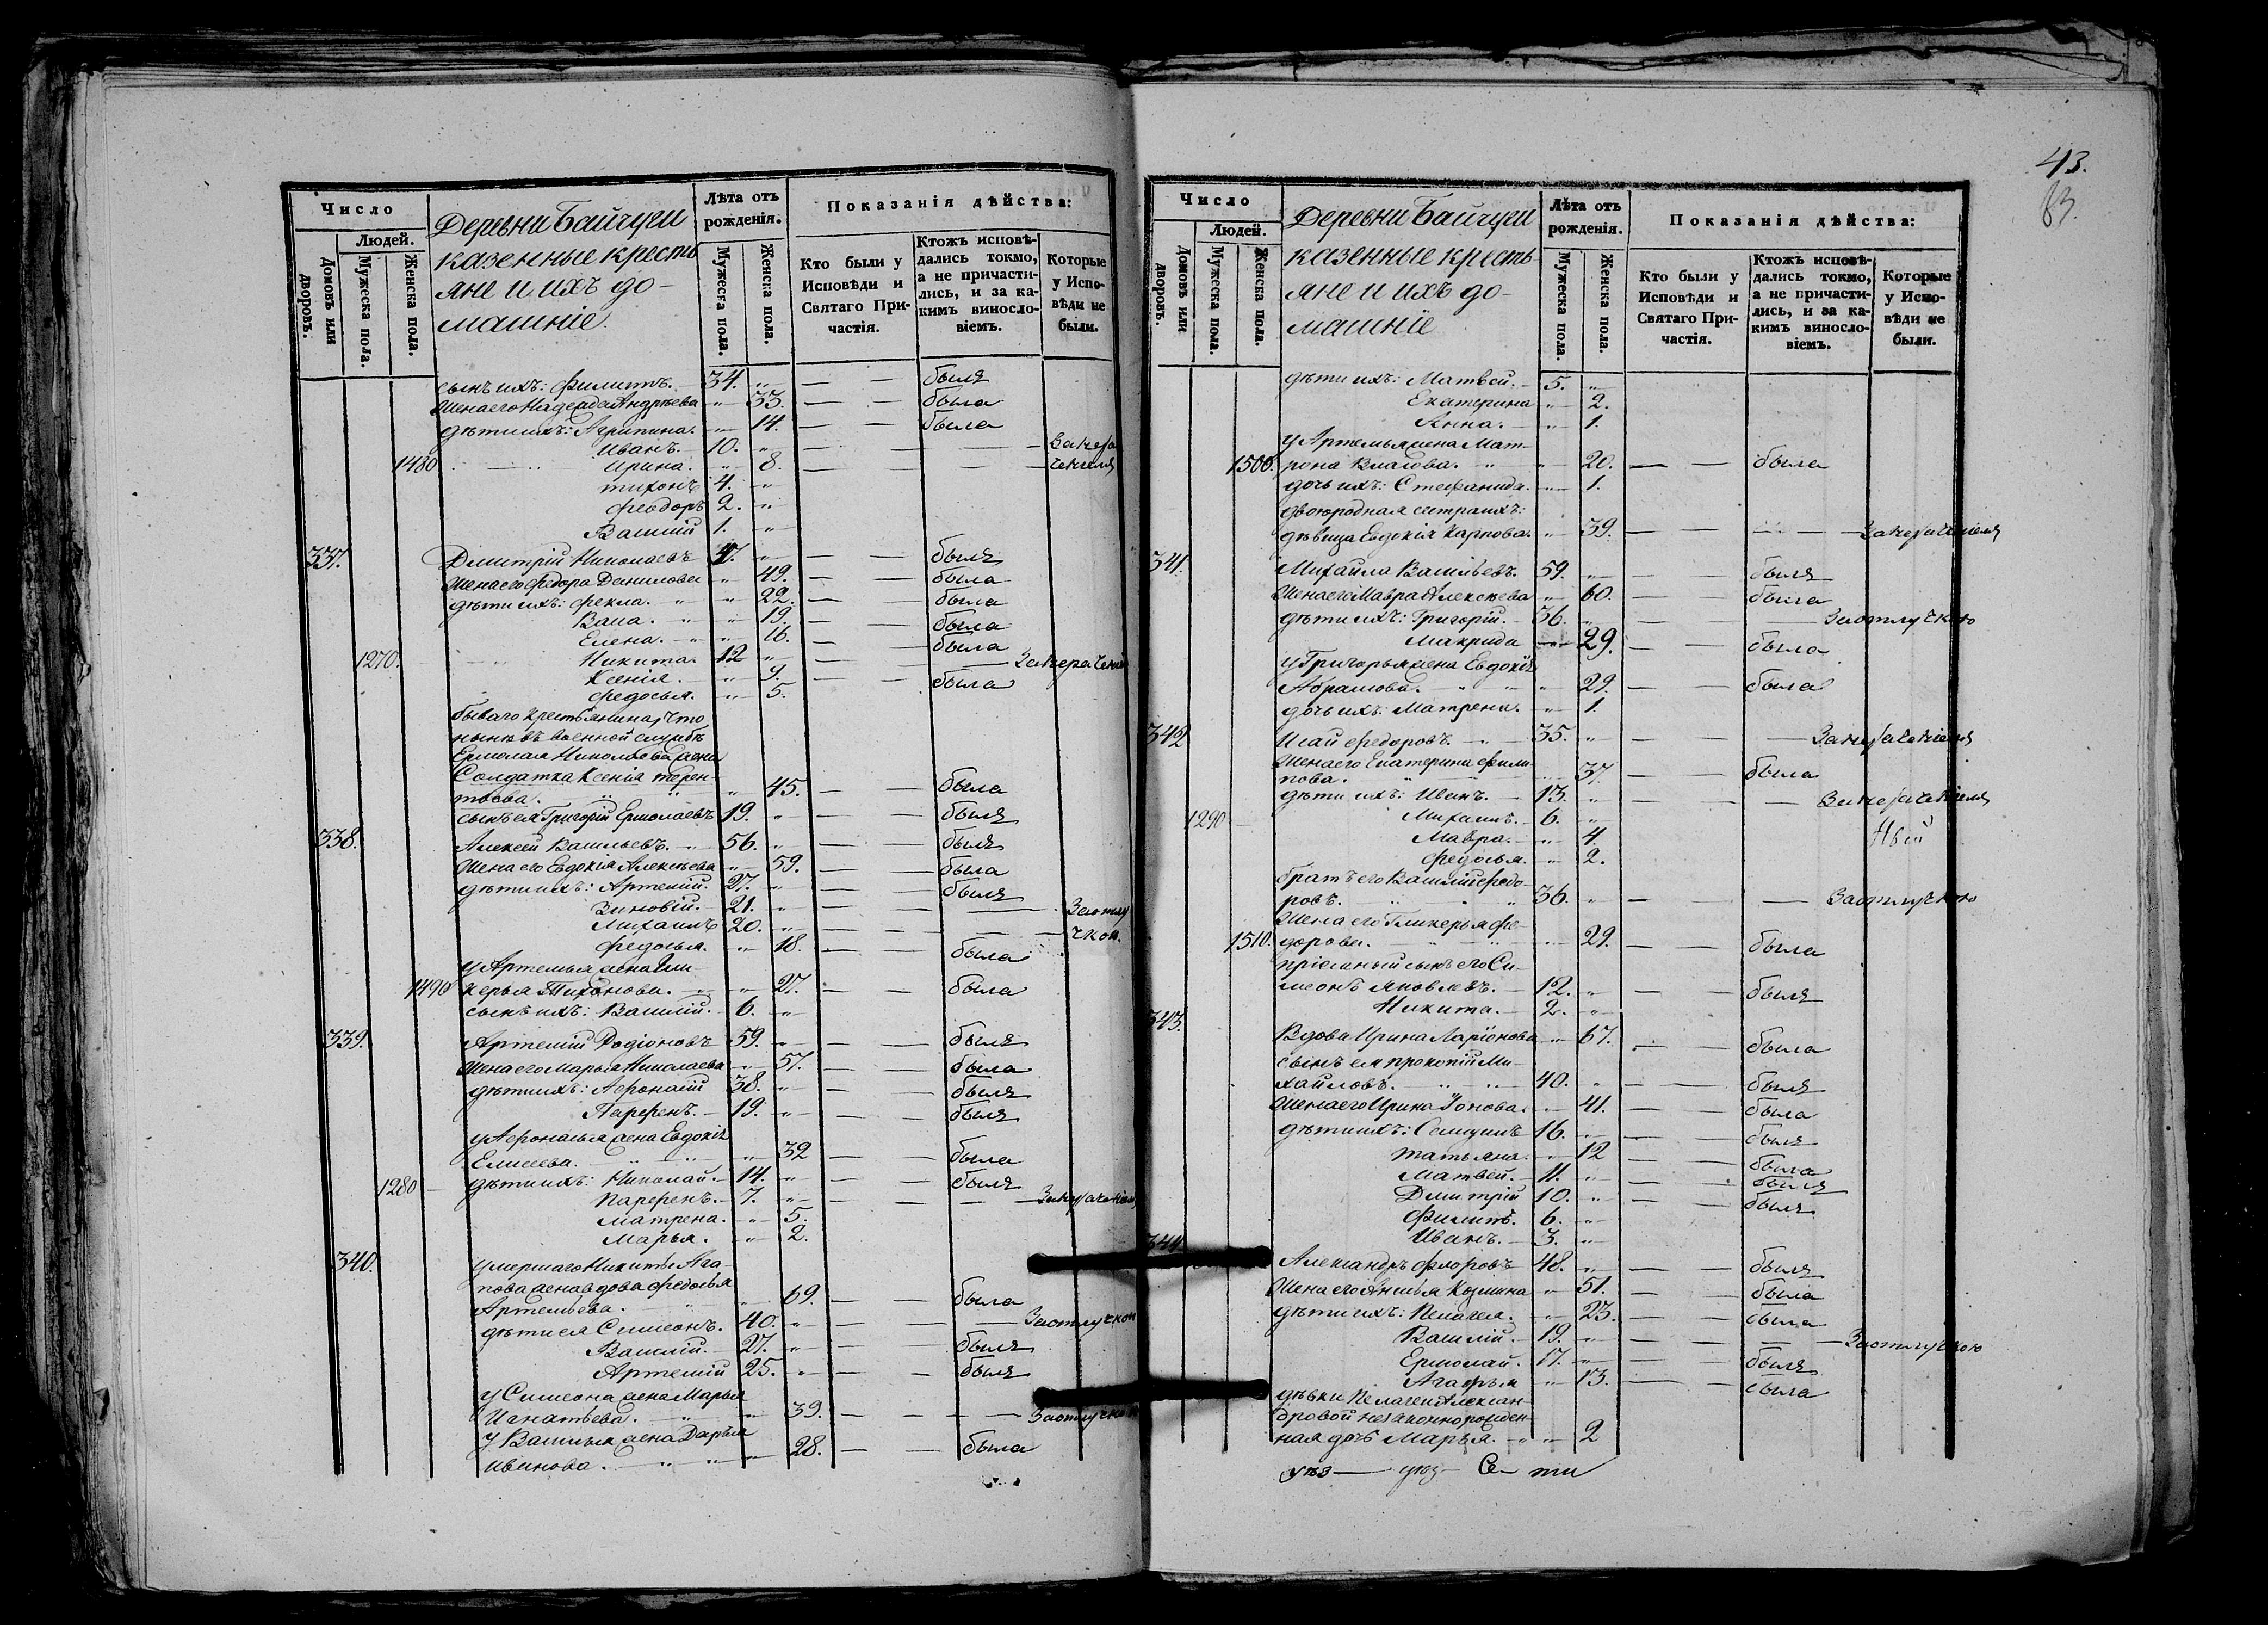 Число
Людей.
Домовъ или дворовъ.
Мужеска пола.
Женска пола.
Деревни Байчуги
казенные кресть
яне и ихъ до-
машніе.
Лѣта отъ рожденія.
Мужеска пола.
Женска пола.
Показанія дѣйства:
Кто были у Исповѣди и Святаго Причастія.
Ктожъ исповѣдались токмо, а не причастились, и за какимъ винословіемъ.
Которые у Исповѣди не были.
сынъ ихъ: Филиппъ. 34. " — — былъ
Жена его Надежда Андреева " 33. — — была
дѣти ихъ: Агрипина. " 14. — — была
Иванъ. 10. " — — — За нера
1480 Ирина. " 8. — — — ченіемъ
Тихонъ 4. "
Феодоръ 2. "
Василій 1. "
337. Дмитрій Николаевъ 47. " — — былъ
Жена его Федора Данилова " 49. — — была
дѣти ихъ: Фекла. " " 22. — — была
Васа. " " 19. — — была
Елена. " " 16. — — была
1270. Никита. 12 " — — — За нераченіе
Ксенія. " 9. — — была
Федосья. " 5.
бываго крестьянина, что
нынѣ въ военной службѣ
Ермолая Николаева жена
Солдатка Ксенія Терен-
тьева. " " " 45. — — была
сынъ ея Григорій Ермолаевъ 19. " — — былъ
338. Алексей Васильевъ. 56. " — — былъ
Жена его Евдокія Алексѣева " 59. — — была
дѣти ихъ: Артемій. 27. " — — былъ
Зиновій. 21. " — — — За отлу
Михаилъ 20. " — — — чкою.
Федосья. " 18. — — была
у Артемья жена Гли-
1490 керья Тихонова. " " 27. — — была
сынъ ихъ: Василій. 6. "
339. Артемій Родіоновъ 59. " — — былъ
Жена его Марья Николаева " 57. — — была
дѣти ихъ: Афонасій 38. " — — былъ
Парфенъ. 19. " — — былъ
у Афонасья жена Евдокія
Елисеева. " " " 32 — — была
1280 дѣти ихъ: Николай. 14. " — — былъ
Парфенъ. 7. " — — — За нераченіемъ
Матрена. " 5.
Марья. " 2.
340. умершаго Никиты Ага-
пова жена вдова Федосья
Артемьева. " " 69. — — была
дѣти ея Симеонъ. 40. " — — — За отлучкою
Василій. 27. " — — былъ
Артемій 25. " — — былъ
у Симеона жена Марья
Игнатьева. " " 39. — — — За отлучкою
у Василья жена Дарья
Иванова. " " " 28. — — была
43.
83.
Число
Людей.
Домовъ или дворовъ.
Мужеска пола.
Женска пола.
Деревни Байчуги
казенные кресть
яне и ихъ до-
машніе
Лѣта отъ рожденія.
Мужеска пола.
Женска пола.
Показанія дѣйства:
Кто были у Исповѣди и Святаго Причастія.
Ктожъ исповѣдались токмо, а не причастились, и за какимъ винословіемъ.
Которые у Исповѣди не были.
дѣти ихъ: Матвей. 5. "
Екатерина " 2.
Анна. " 1.
у Артемья жена Мат-
1500. рона Власова. " " 20. — — была
дочь ихъ: Стефанида. " 1.
двоюродная сестра ихъ:
дѣвица Евдокія Карпова. " 39. — — — За нераченіемъ
341. Михайла Васильевъ. 59. " — — былъ
Жена его Мавра Алексѣева " 60. — — была
дѣти ихъ: Григорій. 36. " — — За отлучкою
Макрида " 29. — — была
у Григорья жена Евдокія
Абрамова. " " " 29. — — была
дочь ихъ: Матрена. " 1.
342 Исай Федоровъ. " 35. " — — — За нераченіемъ
Жена его Екатерина Фили-
пова. " 37. — — была
дѣти ихъ: Иванъ. 13. " — — — За нераченіемъ
1290 Михаилъ. 6. "
Мавра. " 4
Федосья. " 2.
братъ его Василій Федо-
ровъ. " " 36. " — — — За отлучкою
Жена его Гликерья Фе-
1510. дорова. " " " 29. — — была
пріемный сынъ его Си-
меонъ Яковлевъ. 12. " — — былъ
Никита. 2. "
343. Вдова Ирина Ларіонова " 67. — — была
сынъ ея Прокопій Ми-
хайловъ. " " 40. " — — былъ
Жена его Ирина Іонова. " 41. — — была
дѣти ихъ: Самуилъ 16. " — — былъ
Татьяна. " 12 — — была
Матвей. 11. " — — былъ
Дмитрій 10. " — — былъ
Филипъ. 6. "
Иванъ. 3. "
344 Александръ Флоровъ 48. " — — былъ
Жена его Анисья Козмина " 51. — — была
дѣти ихъ: Пелагея. " 23. — — была
Василій. 19. " — — — За отлучкою
Ермолай. 17. " — — былъ
Агафья " 13. — — была
дѣвки Пелагеи Алексан-
дровой незаконнорожден-
ная дочь Марья. " " 2